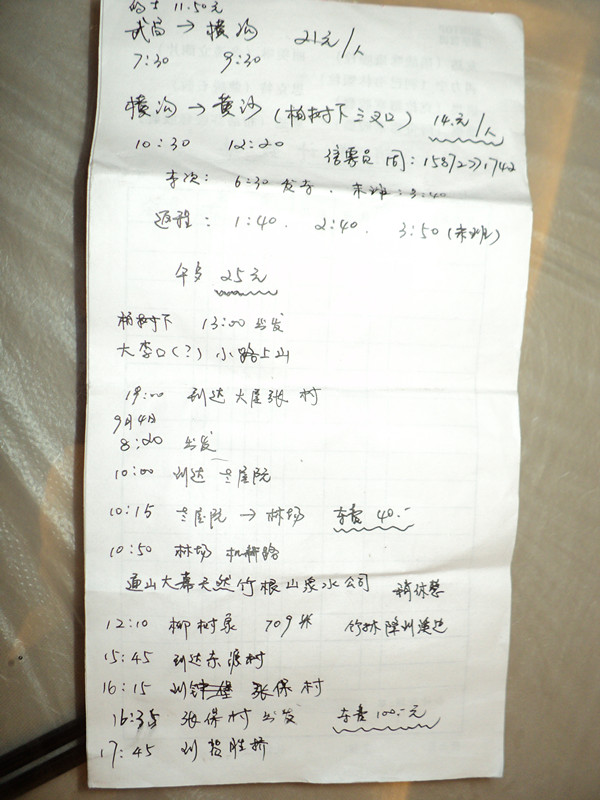 的士 11.50元
武昌 → 横沟 21元/人
7:30 9:30
横沟 → 黄沙 (柏树下三叉口) 14.元/人
10:30 12:20 售票员 周:
李次: 6:30发车. 末班:3:40
返程: 1:40. 2:40. 3:50(末班)
午 25元
柏树下 13:00 出发
大李口(?) 小路上山
19:00 到达大屋张村
9月4日
8:20 出发
10:00 到达 屋阮
10:15 屋阮 → 林场 车费 40.-
10:50 林场 机耕路
通山大幕天然竹根山泉水公司 稍休整
12:10 柳树泉 709米 竹林
15:45 到达东源村
16:15 到 张保村
16:35 张保村出发 车费100.-元
17:45 到 贺胜桥